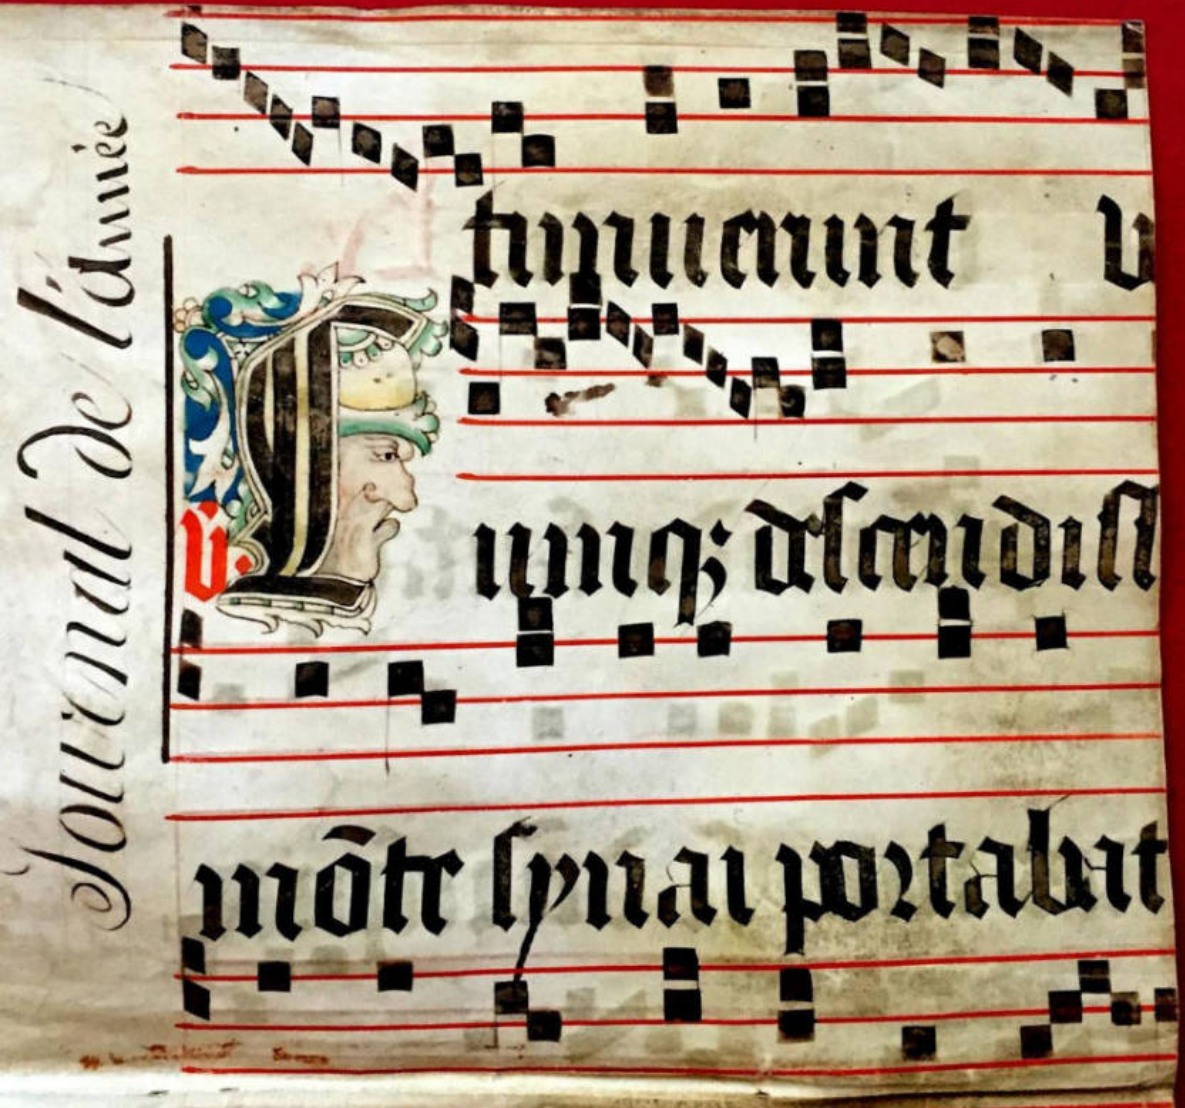 Journal de l'année
timuerunt v
V. Cumq; descendiss
mōte synai portabat